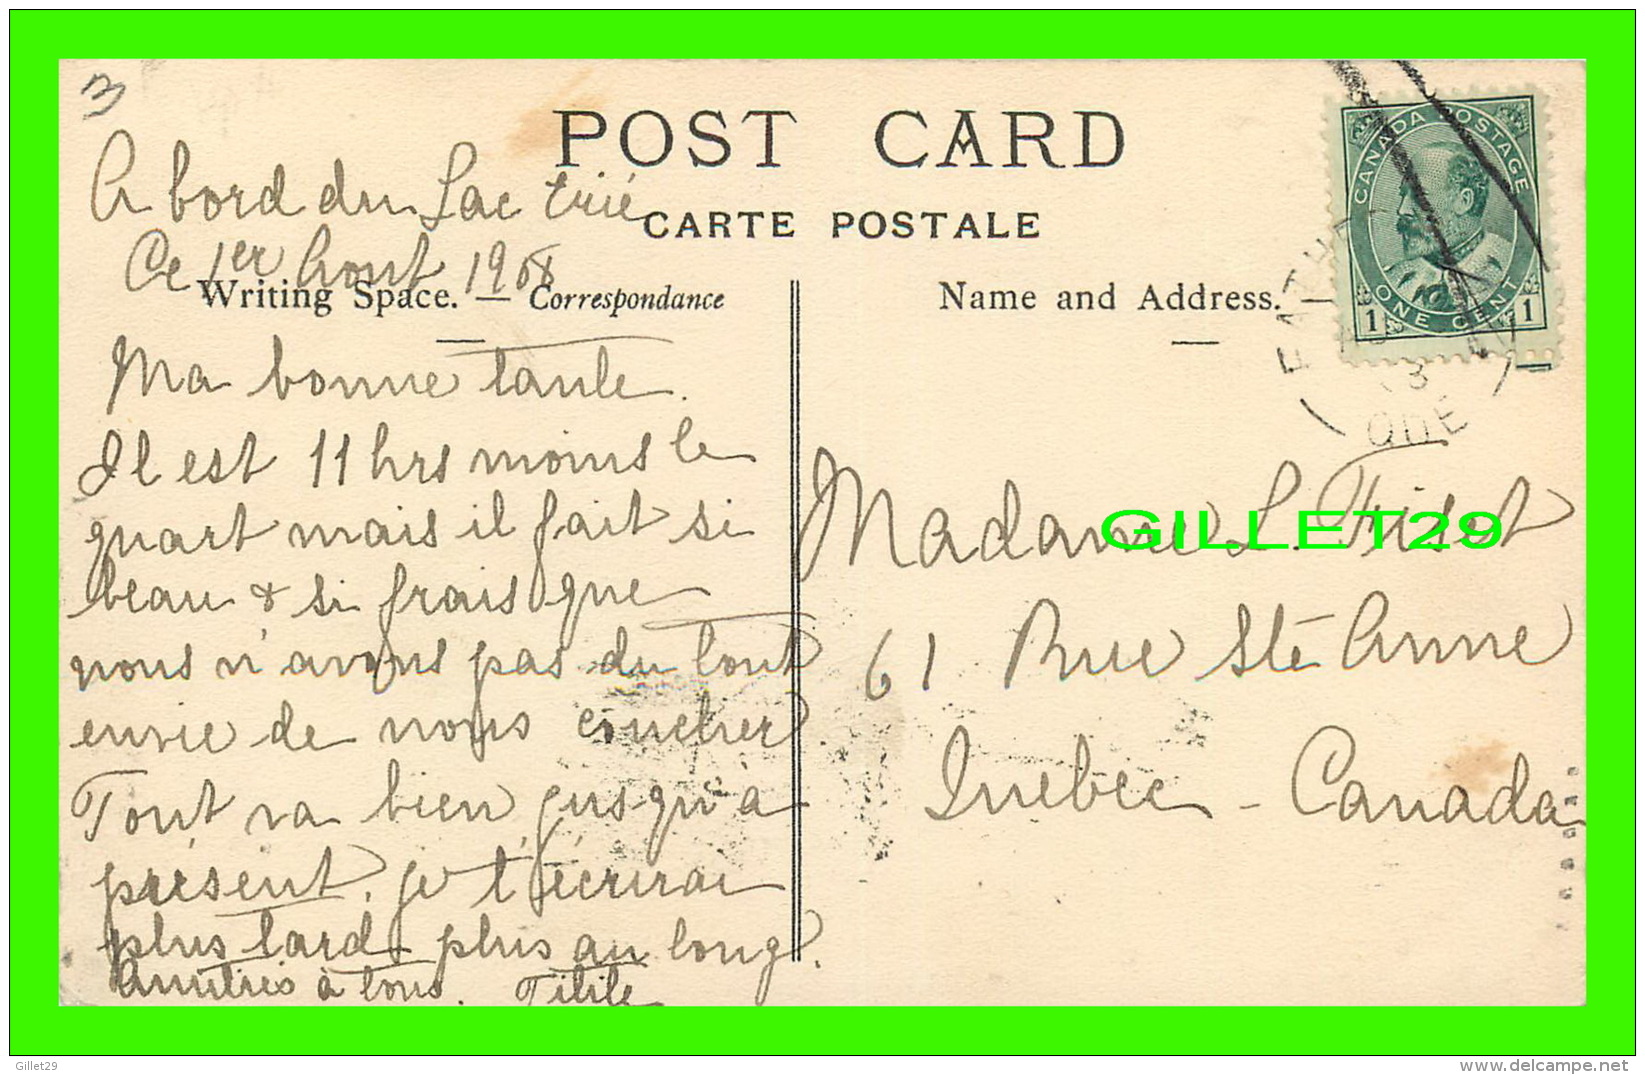 3
POST CARD
CARTE POSTALE
A bord du Lac Érié
Ce 1er Aout 1908
Writing Space. — Correspondance
Ma bonne tante.
Il est 11 hrs moins le
quart mais il fait si
beau & si frais que
nous n'avons pas du tout
envie de nous coucher
Tout va bien jusqu'à
présent. je t'écrirai
plus tard plus au long.
Amitiés à tous. Titite
Name and Address. —
CANADA POSTAGE
ONE CENT
1 1
QUE
Madame L. Fiset
61 Rue Ste Anne
Quebec - Canada
GILLET29
Gillet29
www.delcampe.net